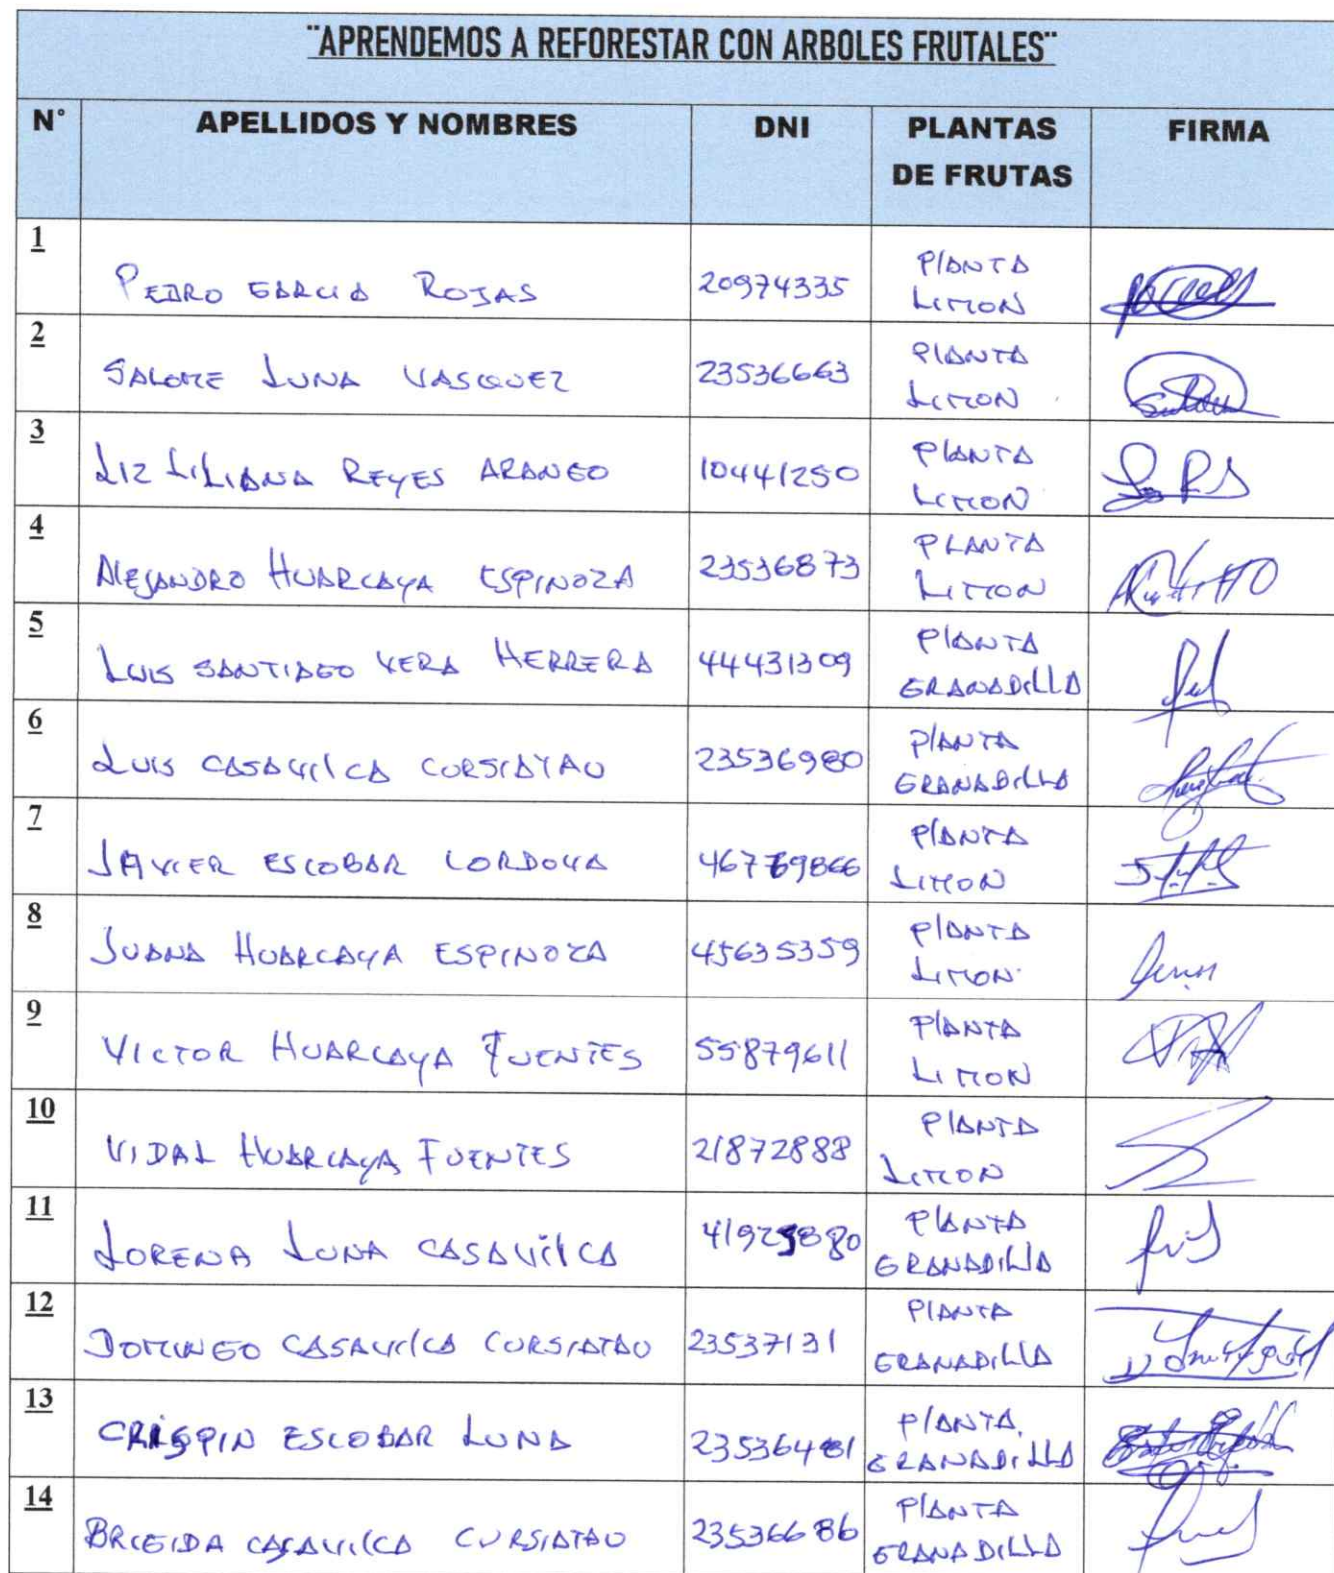 "APRENDEMOS A REFORESTAR CON ARBOLES FRUTALES"
N° APELLIDOS Y NOMBRES DNI PLANTAS DE FRUTAS FIRMA
1 PEDRO GARCIA ROJAS 20974335 PLANTA LIMON
2 SALOME LUNA VASQUEZ 23536663 PLANTA LIMON
3 LIZ LILIANA REYES ARANGO 10441250 PLANTA LIMON
4 ALEJANDRO HUARCAYA ESPINOZA 23536873 PLANTA LIMON
5 LUIS SANTIAGO VERA HERRERA 44431309 PLANTA GRANADILLA
6 LUIS CASAVILCA CURSIATAU 23536980 PLANTA GRANADILLA
7 JAVIER ESCOBAR CORDOVA 46769866 PLANTA LIMON
8 JUANA HUARCAYA ESPINOZA 45635359 PLANTA LIMON
9 VICTOR HUARCAYA FUENTES 55879611 PLANTA LIMON
10 VIDAL HUARCAYA FUENTES 21872888 PLANTA LIMON
11 LORENA LUNA CASAVILCA PLANTA GRANADILLA
12 DOMINGO CASAVILCA CURSIATAO 23537131 PLANTA GRANADILLA
13 CRISPIN ESCOBAR LUNA 23536481 PLANTA GRANADILLA
14 BRIGIDA CASAVILCA CURSIATAO 23536686 PLANTA GRANADILLA